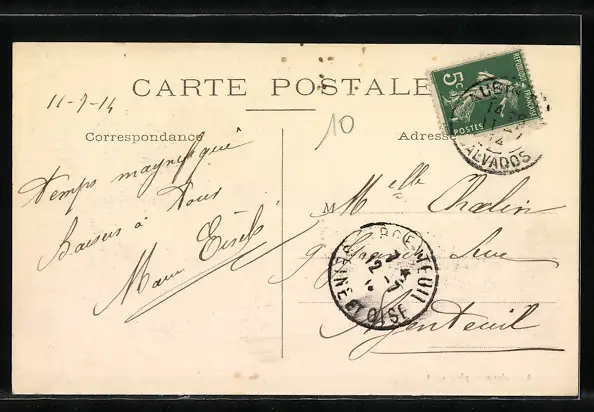 CARTE POSTALE
11-7-14
Correspondance
Adresse
10
Temps magnifique
Baisers à tous
Marie
Mlle Chalin
9 Grande Rue
Argenteuil
5c
POSTES
République Française
AUBIN
14
CALVADOS
ARGENTEUIL
12-7
14
SEINE ET OISE